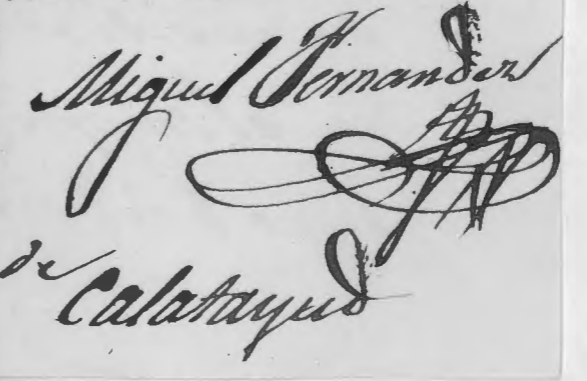 Miguel Fernandez
de
Calatayud